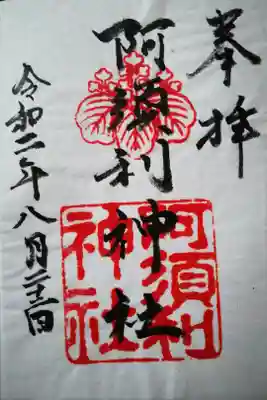 奉拝
阿須利神社
令和二年八月二十二日
阿須利
神社